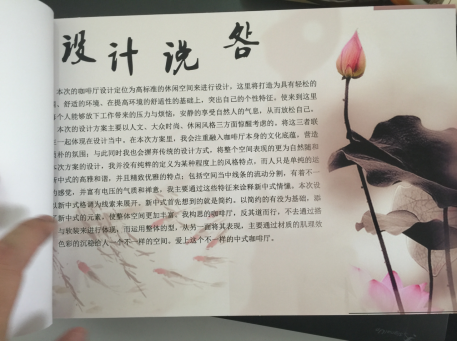 设计说明
本次的咖啡厅设计定位为高标准的休闲空间来进行设计。这里将打造为具有轻松的
舒适的环境。在提高环境的舒适性的基础上，突出自己的个性特征。使来到这里
个人能够放下工作带来的压力与烦恼，安静的享受自然人的气息，从而放松自己。
本次的设计方案主要以人文、大众时尚、休闲风格三方面惊醒考虑的。将这三者联
一起休现在设计当中。在本次方案里，我会注重融入咖啡厅本身的文化底蕴，营造
朴的氛围，与此同时我也会摒弃传统的设计方式，将整个空间表现的更为自然随和
本次方案的设计，我并没有纯粹的定义为某种程度上的风格特点，而人只是单纯的运
新中式的高雅和谐，并且精致优雅的特点；包括空间当中线条的流动分割，有着不一
的感觉，并富有电压的气质和禅意。我主要通过这些特征来诠释新中式情愫。本次设
以新中式格调为线索来展开。新中式首先想到的就是简约，以简约的有没为基础，添
新中式的元素，使整体空间更加丰富。我构思的咖啡厅，反其道而行，不去通过
与软装来进行体现，而运用整体的型，从另一面将其表现，主要通过材质的肌理效
色彩的沉稳给人一个不一样的空间，爱上这个不一样的中式咖啡厅。